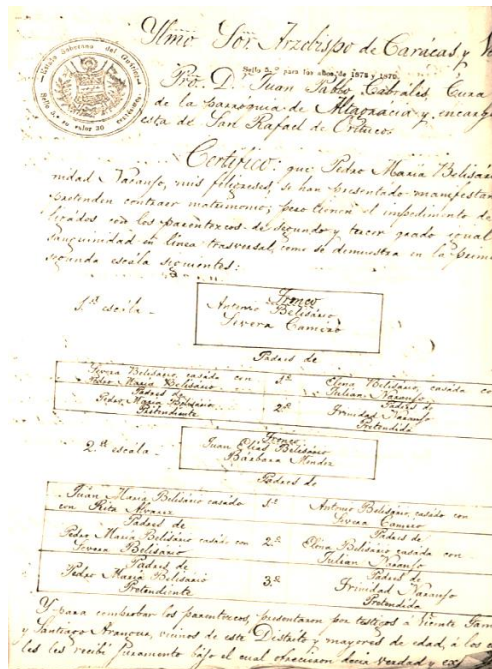 Ylmo Sor. Arzobispo de Caracas, y
Estado Soberano del Guárico
Sello 5.º su valor 20 centésimos
Sello 5.º para los años de 1878 y 1879.
Pro. D. Juan Pablo Cabrales Cura
de la parroquia de Altagracia y encarg
esta de San Rafael de Orituco
Certifico: que Pedro Maria Belisar
nidad Naranjo, mis feligreses, se han presentado manifestan
pretenden contraer matrimonio; pero tienen el impedimento de
ligados con los parentezcos de segundo y tercer grado igual
sanguinidad en linea trasversal, como se demuestra en la prime
segunda escala siguientes:
1.ª escala -
Tronco
Antonio Belisario
Severa Camero
Padres de
Severa Belisario, casada con
Pedro Maria Belisario
1.º
Elina Belisario, casada co
Julian Naranjo
Padres de
Pedro Maria Belisario
Pretendiente
2.º
Padres de
Trinidad Naranjo
Pretendida
2.ª escala -
Tronco
Juan Elias Belisario
Bárbara Mendez
Padres de
Juan Maria Belisario casado
con Rita Alvarez
1.º
Antonio Belisario, casado con
Severa Camero
Padres de
Pedro Maria Belisario casado con
Severa Belisario
2.º
Padres de
Elina Belisario casada con
Julian Naranjo
Padres de
Pedro Maria Belisario
Pretendiente
3.º
Padres de
Trinidad Naranjo
Pretendida
Y para comprobar los parentezcos, presentaron por testigos á Vicente
y Santiago vecinos de este Distrito y mayores de edad, á los
les les recibí juramento bajo el cual ofrecieron decir verdad